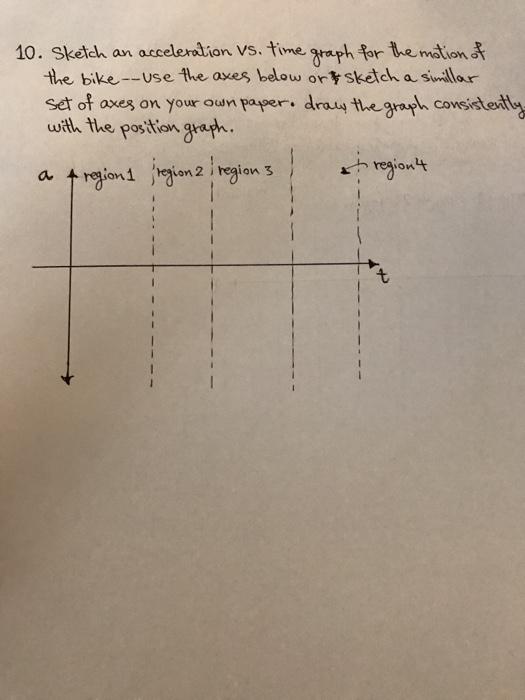 10. Sketch an acceleration vs. time graph for the motion of
the bike -- Use the axes below or sketch a simillar
set of axes on your own paper. draw the graph consistently
with the position graph.
a region 1 region 2 region 3 region 4
t